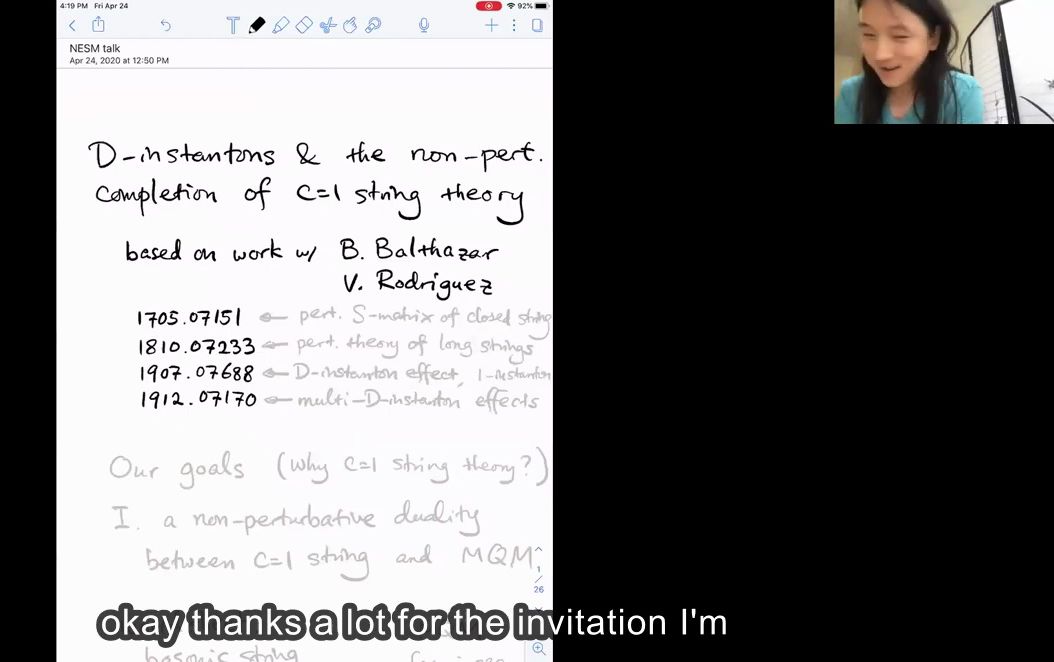 4:19 PM Fri Apr 24
92%
NESM talk
Apr 24, 2020 at 12:50 PM
D-instantons & the non-pert.
completion of c=1 string theory
based on work w/ B. Balthazar
V. Rodriguez
1705.07151 ← pert. S-matrix of closed string
1810.07233 ← pert. theory of long strings
1907.07688 ← D-instanton effect, 1-instanton
1912.07170 ← multi-D-instanton effects
Our goals (why c=1 string theory?)
I. a non-perturbative duality
between c=1 string and MQM
1
/
26
okay thanks a lot for the invitation I'm
bosonic string